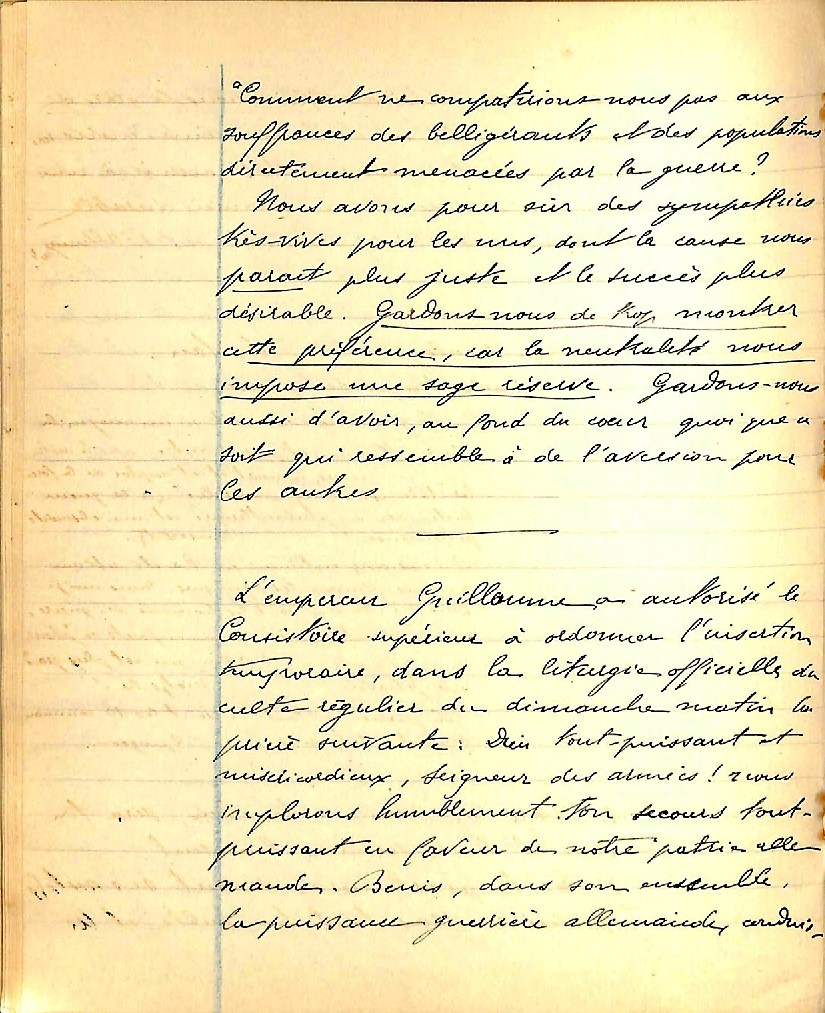 "Comment ne compatirions-nous pas aux
souffrances des belligérants et des populations
directement menacées par la guerre?
Nous avons pour sûr des sympathies
très-vives pour les uns, dont la cause nous
parait plus juste et le succès plus
désirable. Gardons-nous de trop montrer
cette préférence, car la neutralité nous
impose une sage réserve. Gardons-nous
aussi d'avoir, au fond du cœur quoi que ce
soit qui ressemble à de l'aversion pour
les autres
L'empereur Guillaume a autorisé le
Consistoire supérieur à ordonner l'insertion
temporaire, dans la liturgie officielle du
culte régulier du dimanche matin la
prière suivante: Dieu tout-puissant et
miséricordieux, Seigneur des armées! nous
implorons humblement ton secours tout-
puissant en faveur de notre patrie alle
mande. Bénis, dans son ensemble,
la puissance guerrière allemande, conduis-